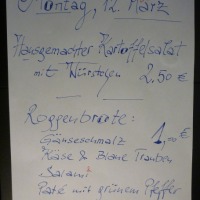 Montag, 12. März
Hausgemachter Kartoffelsalat
mit Würstchen 2,50 €
Roggenbrote:
Gänseschmalz 1,50 €
Käse & Blaue Trauben
Salami
Paté mit grünem Pfeffer